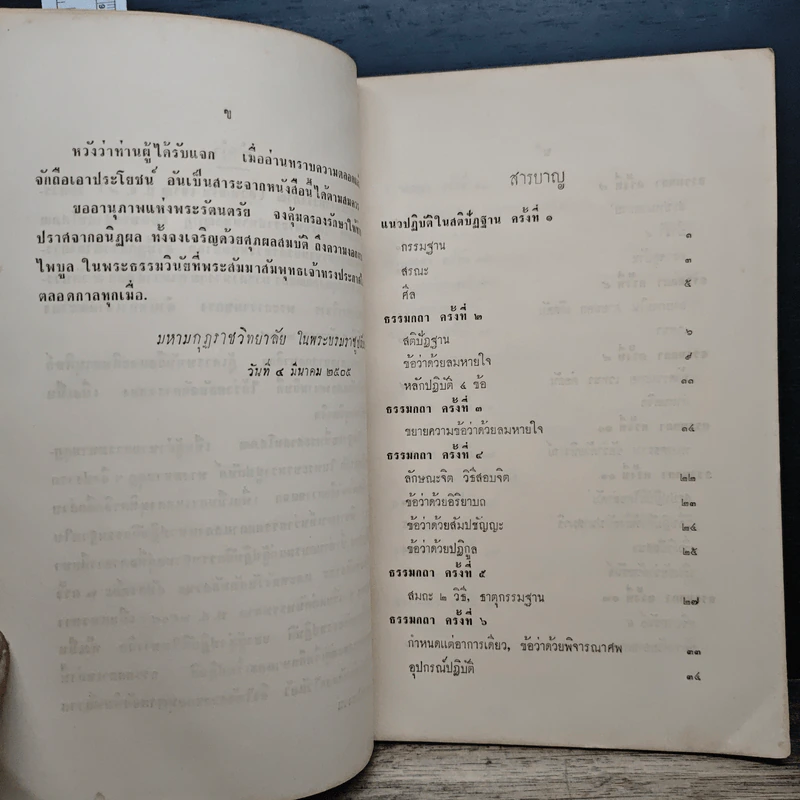 ข
หวังว่าท่านผู้ได้รับแจก เมื่ออ่านทราบความตลอดแล้ว
จักถือเอาประโยชน์ อันเป็นสาระจากหนังสือนี้ได้ตามสมควร
ขออานุภาพแห่งพระรัตนตรัย จงคุ้มครองรักษาให้ท่าน
ปราศจากอนิฏผล ทั้งจงเจริญด้วยสุภผลสมบัติ ถึงความงอกงาม
ไพบูล ในพระธรรมวินัยที่พระสัมมาสัมพุทธเจ้าทรงประกาศ
ตลอดกาลทุกเมื่อ.
มหามกุฏราชวิทยาลัย ในพระบรมราชูปถัมภ์
วันที่ ๔ มีนาคม ๒๕๐๕
สารบาญ
แนวปฏิบัติในสติปัฏฐาน ครั้งที่ ๑
กรรมฐาน ๑
สรณะ ๓
ศีล ๕
ธรรมกถา ครั้งที่ ๒
สติปัฏฐาน ๖
ข้อว่าด้วยลมหายใจ ๙
หลักปฏิบัติ ๔ ข้อ ๑๑
ธรรมกถา ครั้งที่ ๓
ขยายความข้อว่าด้วยลมหายใจ ๑๔
ธรรมกถา ครั้งที่ ๔
ลักษณะจิต วิธีสอบจิต ๒๒
ข้อว่าด้วยอิริยาบถ ๒๓
ข้อว่าด้วยสัมปชัญญะ ๒๔
ข้อว่าด้วยปฏิกูล ๒๕
ธรรมกถา ครั้งที่ ๕
สมถะ ๒ วิธี, ธาตุกรรมฐาน ๒๗
ธรรมกถา ครั้งที่ ๖
กำหนดแต่อาการเดียว, ข้อว่าด้วยพิจารณาศพ ๓๓
อุปกรณ์ปฏิบัติ ๓๔